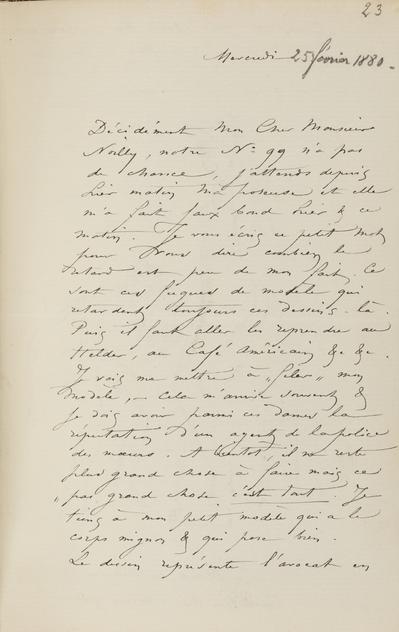 23
Mercredi 25 février 1880 -
Décidément Mon Cher Monsieur
Noilly, notre No 99 n'a pas
de chance, j'attends depuis
hier matin ma poseuse et elle
m'a fait faux bond hier & ce
matin. Je vous écris ce petit mot
pour vous dire combien le
retard est peu de mon fait. Ce
sont ces fugues de modèle qui
retardent toujours ces dessins-là.
Puis il faut aller les reprendre au
Helder, au Café Américain &c &c.
Je vais me mettre à "filer" mon
modèle, - cela m'arrive souvent &
je dois avoir parmi ces dames la
réputation d'un agent de la police
des mœurs. A bientôt, il me reste
plus grand chose à faire mais ce
"pas grand chose c'est tout. Je
tiens à mon petit modèle qui a le
corps mignon & qui pose bien.
Le dessin représente l'avocat en